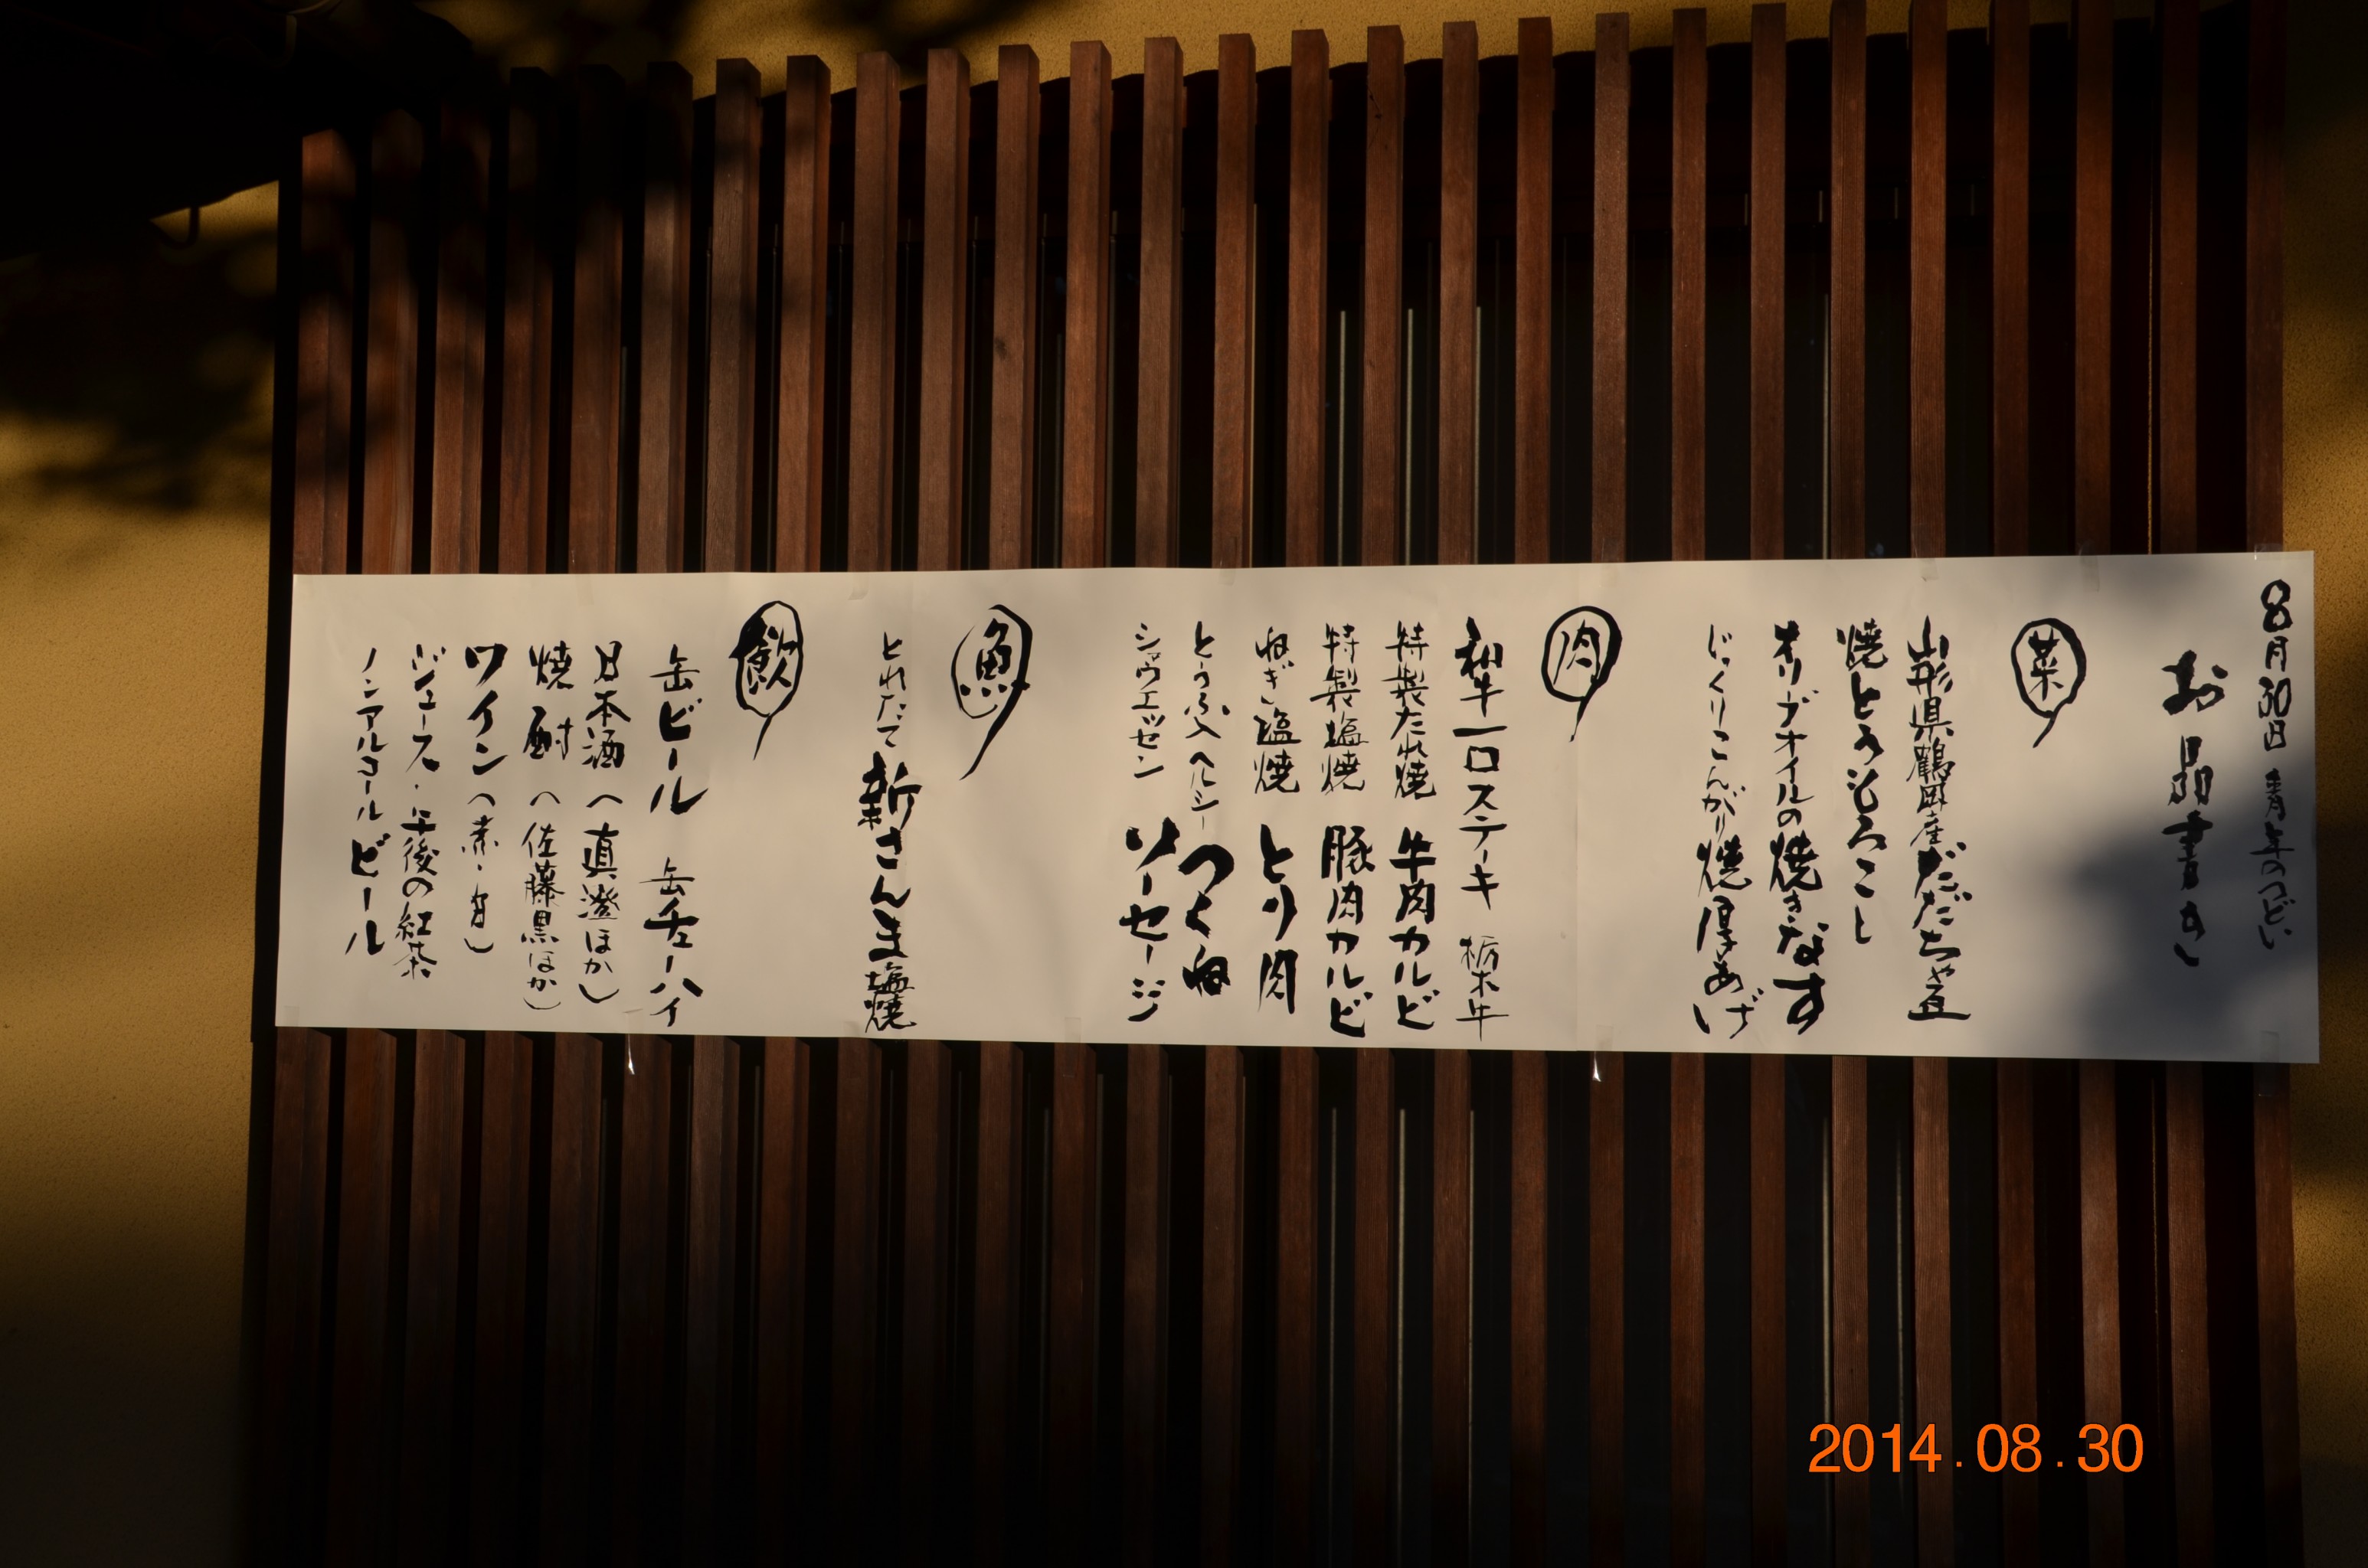 8月30日 青年のつどい
お品書き
菜
山形県鶴岡産だだちゃ豆
焼とうもろこし
オリーブオイルの焼きなす
じっくりこんがり焼厚あげ
肉
和牛一口ステーキ 栃木牛
特製たれ焼 牛肉カルビ
特製塩焼 豚肉カルビ
ねぎ塩焼 とり肉
とうふ入ヘルシー つくね
シャウエッセン ソーセージ
魚
とれたて新さんま塩焼
飲
缶ビール 缶チューハイ
日本酒(真澄ほか)
焼酎(佐藤黒ほか)
ワイン(赤・白)
ジュース・午後の紅茶
ノンアルコールビール
2014.08.30